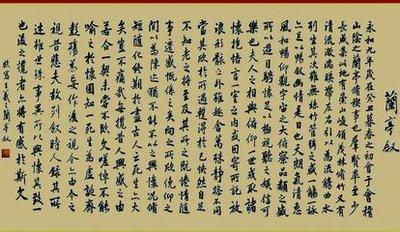 蘭亭敘
永和九年歲在癸丑暮春之初會于會稽
山陰之蘭亭脩稧事也羣賢畢至少
長咸集此地有崇山峻領茂林脩竹又有
清流激湍暎帶左右引以為流觴曲水
列坐其次雖無絲竹管弦之盛一觴一詠
亦足以暢敘幽情是日也天朗氣清惠
風和暢仰觀宇宙之大俯察品類之盛
所以遊目騁懷足以極視聽之娛信可
樂也夫人之相與俯仰一世或取諸
懷抱悟言一室之內或因寄所託放
浪形骸之外雖趣舍萬殊靜躁不同
當其欣於所遇暫得於己怏然自足
不知老之將至及其所之既惓情隨
事遷感慨係之矣向之所欣俛仰之
間以為陳迹猶不能不以之興懷況脩
短隨化終期於盡古人云死生亦大
矣豈不痛哉每攬昔人興感之由
若合一契未嘗不臨文嗟悼不能
喻之於懷固知一死生為虛誕齊
彭殤為妄作後之視今亦由今之
視昔悲夫故列敘時人錄其所
述雖世殊事異所以興懷其致一
也後之攬者亦將有感於斯文